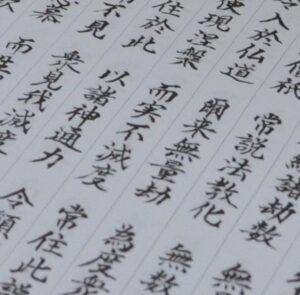 諸劫数
無
祇 常説法教化 無数
入於仏道 爾来無量劫 為度衆
便現涅槃 而実不滅度 常住此説
住於此 以諸神通力 令顛
不見 衆見我滅度
慕 而生